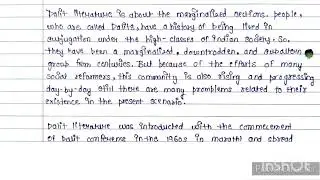 Dalit literature is about the marginalised sections. people,
who are called Dalits, have a history of being lived in
subjugation under the high-classes of Indian society. So,
they have been a marginalised, downtrodden, and subaltern
group form centuries. But because of the efforts of many
social reformers, this community is also rising and progressing
day-by-day still there are many promblems related to their
existence in the present scenario.
Dalit literature was introduced with the commecement
of Dalit conferems in the 1960s in marathi and
InShOt